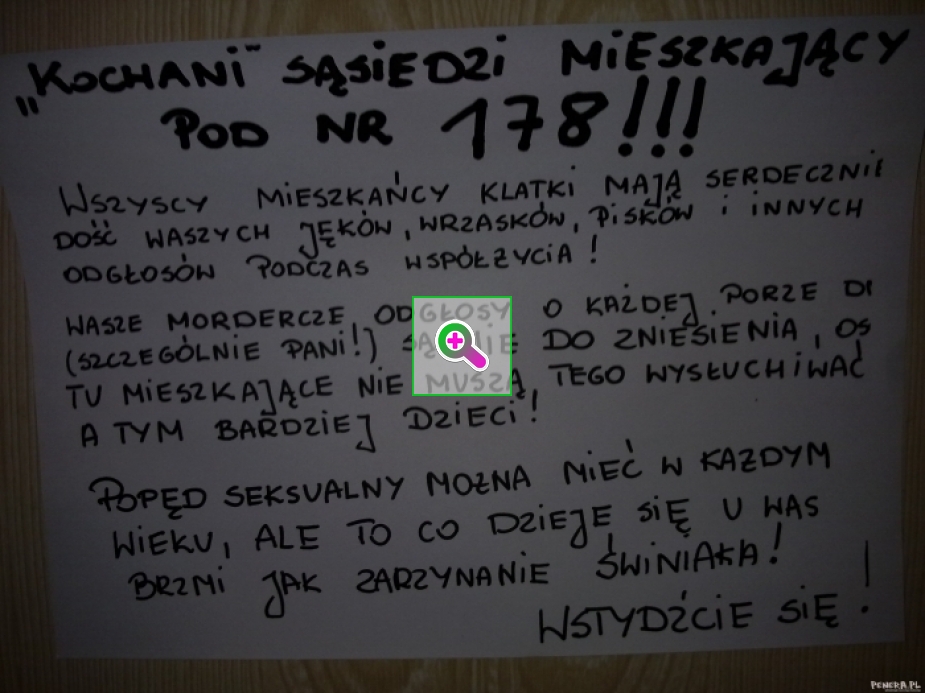 „KOCHANI" SĄSIEDZI MIESZKAJĄCY
POD NR 178!!!
WSZYSCY MIESZKAŃCY KLATKI MAJĄ SERDECZNIE
DOŚĆ WASZYCH JĘKÓW, WRZASKÓW, PISKÓW I INNYCH
ODGŁOSÓW PODCZAS WSPÓŁŻYCIA!
WASZE MORDERCZE ODGŁOSY O KAŻDEJ PORZE
(SZCZEGÓLNIE PANI!) DO ZNIESIENIA,
TU MIESZKAJĄCE NIE MUSZĄ TEGO WYSŁUCHIWAĆ
A TYM BARDZIEJ DZIECI!
POPĘD SEKSUALNY MOŻNA MIEĆ W KAŻDYM
WIEKU, ALE TO CO DZIEJE SIĘ U WAS
BRZMI JAK ZARZYNANIE ŚWINIAKA!
WSTYDŹCIE SIĘ!
PENERA.PL